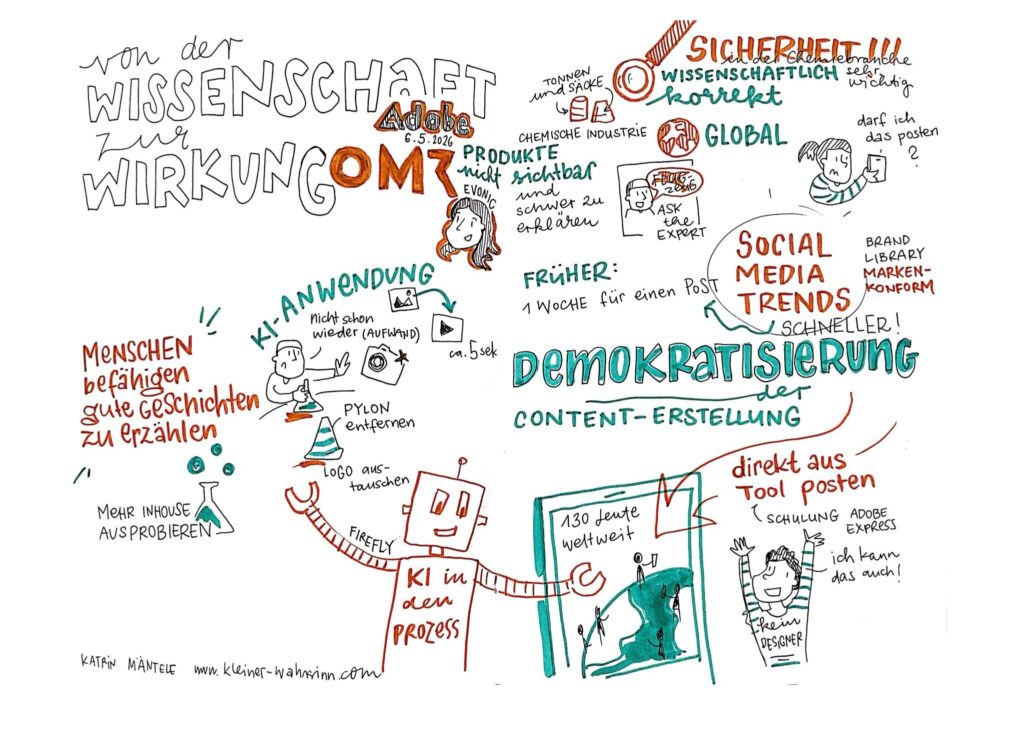 von der
WISSENSCHAFT
zur
WIRKUNG
Adobe
6.5.2026
OMR
EVONIC
PRODUKTE
nicht sichtbar
und
schwer zu
erklären
TONNEN
und SÄCKE
CHEMISCHE INDUSTRIE
SICHERHEIT!!!
in der Chemiebranche
sehr
wichtig
WISSENSCHAFTLICH
korrekt
GLOBAL
darf ich
das posten
?
ASK
the
EXPERT
FRÜHER:
1 WOCHE für einen POST
SOCIAL
MEDIA
TRENDS
BRAND
LIBRARY
MARKEN-
KONFORM
SCHNELLER!
KI-ANWENDUNG
Nicht schon
wieder (AUFWAND)
ca. 5 sek
MENSCHEN
befähigen
gute GESCHICHTEN
zu erzählen
PYLON
entfernen
LOGO aus-
tauschen
MEHR INHOUSE
AUSPROBIEREN
FIREFLY
KI in
den
PROZESS
DEMOKRATISIERUNG
der
CONTENT-ERSTELLUNG
130 Leute
weltweit
direkt aus
Tool posten
SCHULUNG ADOBE
EXPRESS
ich kann
das auch!
kein
DESIGNER
KATRIN MÄNTELE www.kleiner-wahnsinn.com